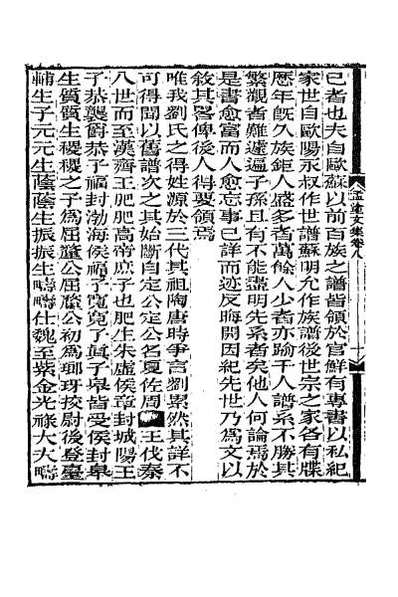 已者也夫自歐蘇以前百族之譜皆領於官鮮有專書以私紀
家世自歐陽永叔作世譜蘇明允作族譜後世宗之家各有牒
歷年旣久族鉅人盛多者萬餘人少者亦踰千人譜系不勝其
繁觀者難遽遍子孫且有不能盡明先系者矣他人何論焉於
是書愈富而人愈忘事已詳而迹反晦閒因紀先世乃爲文以
敘其畧俾後人得要領焉
唯我劉氏之得姓源於三代其祖陶唐時爭言劉累然其詳不
可得聞以舊譜次之其始斷自定公定公名夏佐周 王伐秦
八世而至漢齊王肥肥高帝庶子也肥生朱虛侯章封城陽王
子恭襲爵恭子福封渤海侯福子寬寬子眞子皋皆受侯封皋
生質質生稷稷之子爲屈釐公屈釐公初爲瑯玡按尉後登臺
輔生子元元生蔭蔭生振振生疇疇仕魏至紫金光祿大夫疇
孟塗文集卷八
十